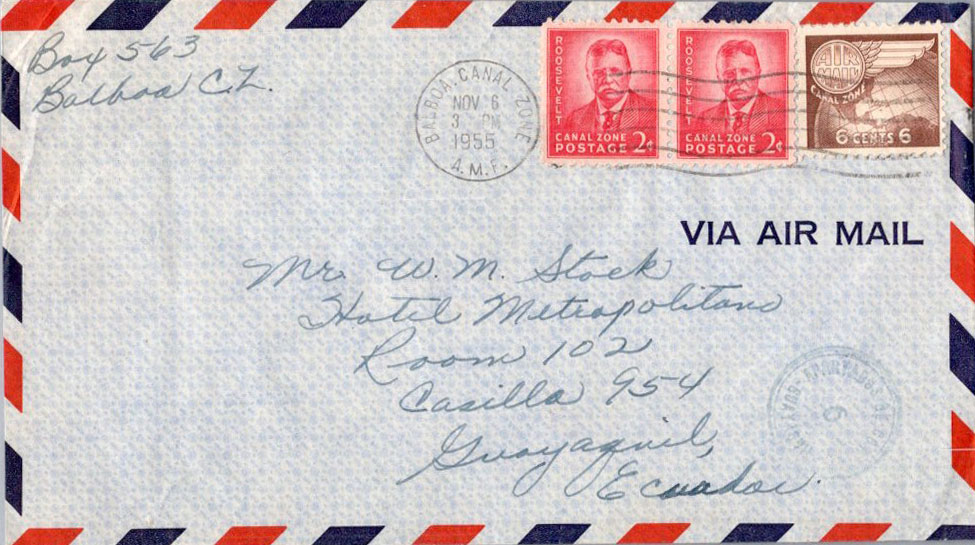 Box 563
Balboa C.Z.
BALBOA, CANAL ZONE
NOV 6
3 PM
1955
A.M.F.
ROOSEVELT
CANAL ZONE
POSTAGE 2¢
ROOSEVELT
CANAL ZONE
POSTAGE 2¢
AIR
MAIL
CANAL ZONE
6 CENTS 6
VIA AIR MAIL
Mr. W. M. Stock
Hotel Metropolitano
Room 102
Casilla 954
Guayaquil,
Ecuador.
6